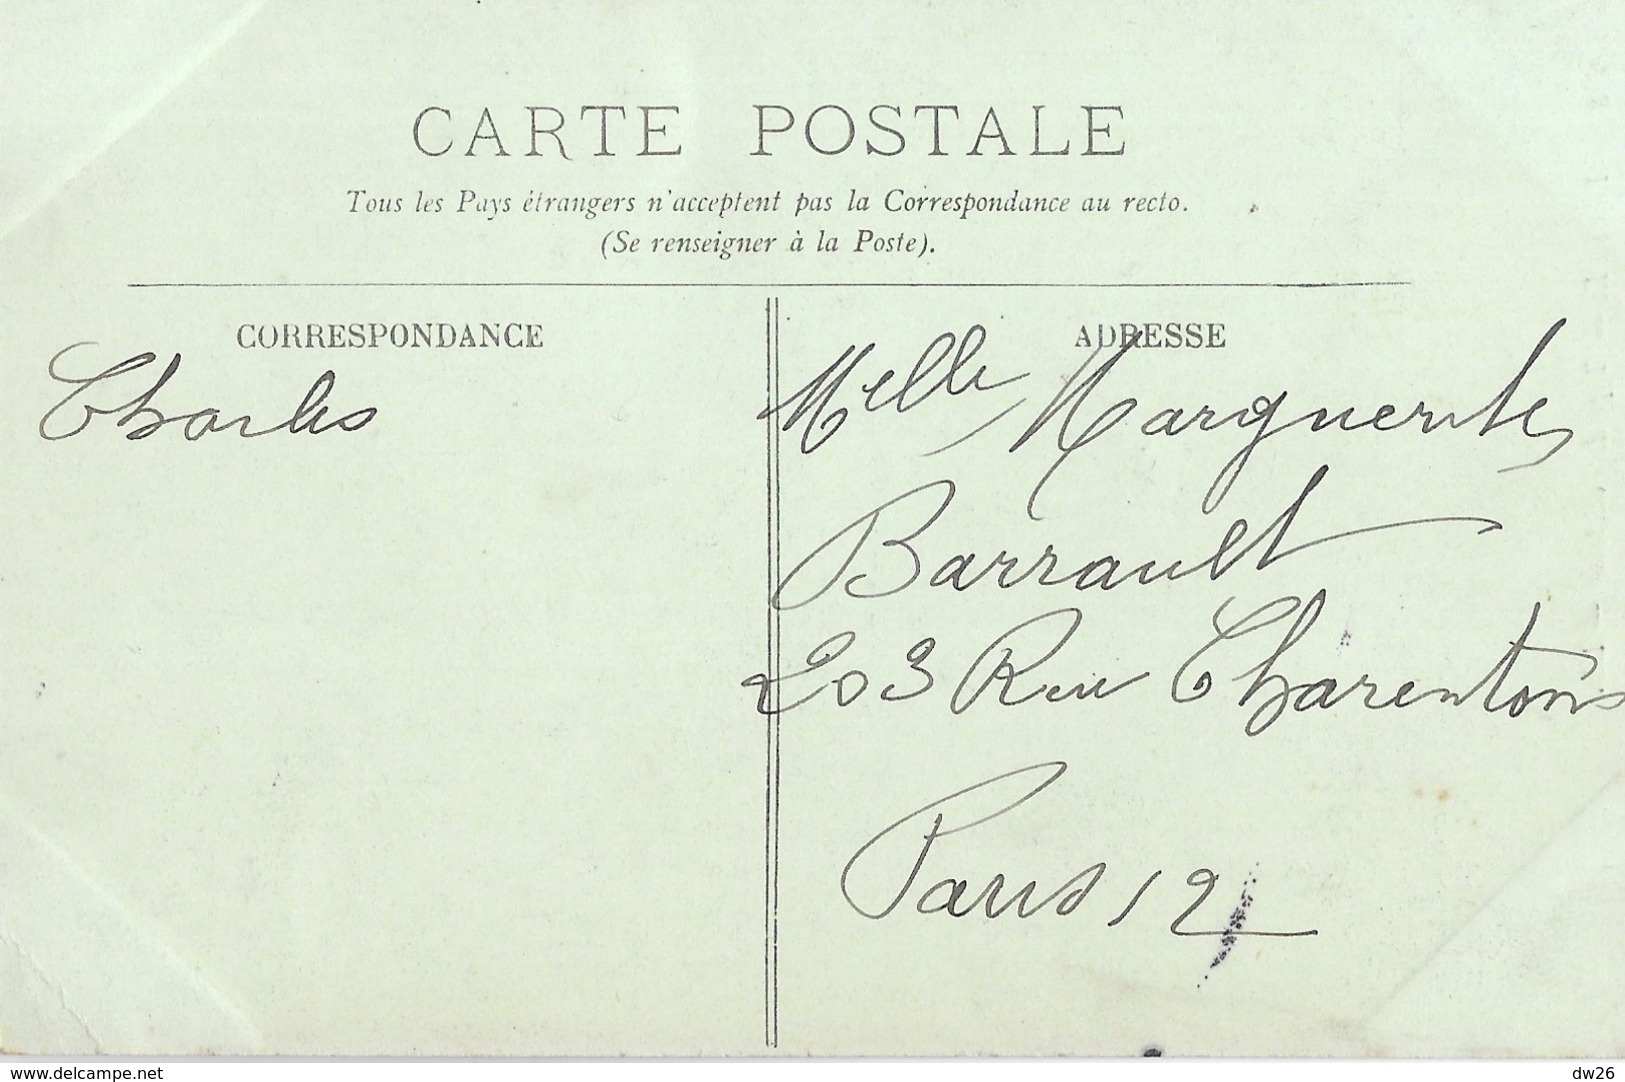 CARTE POSTALE
Tous les Pays étrangers n'acceptent pas la Correspondance au recto.
(Se renseigner à la Poste).
CORRESPONDANCE
Charles
ADRESSE
Melle Marguerite
Barrault
203 Rue Charenton
Paris 12
www.delcampe.net
dw26